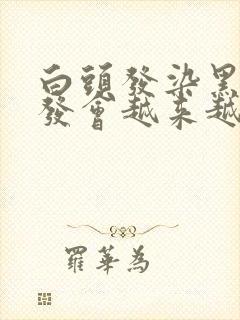 白頭發染黑
發會越来越
羅華為